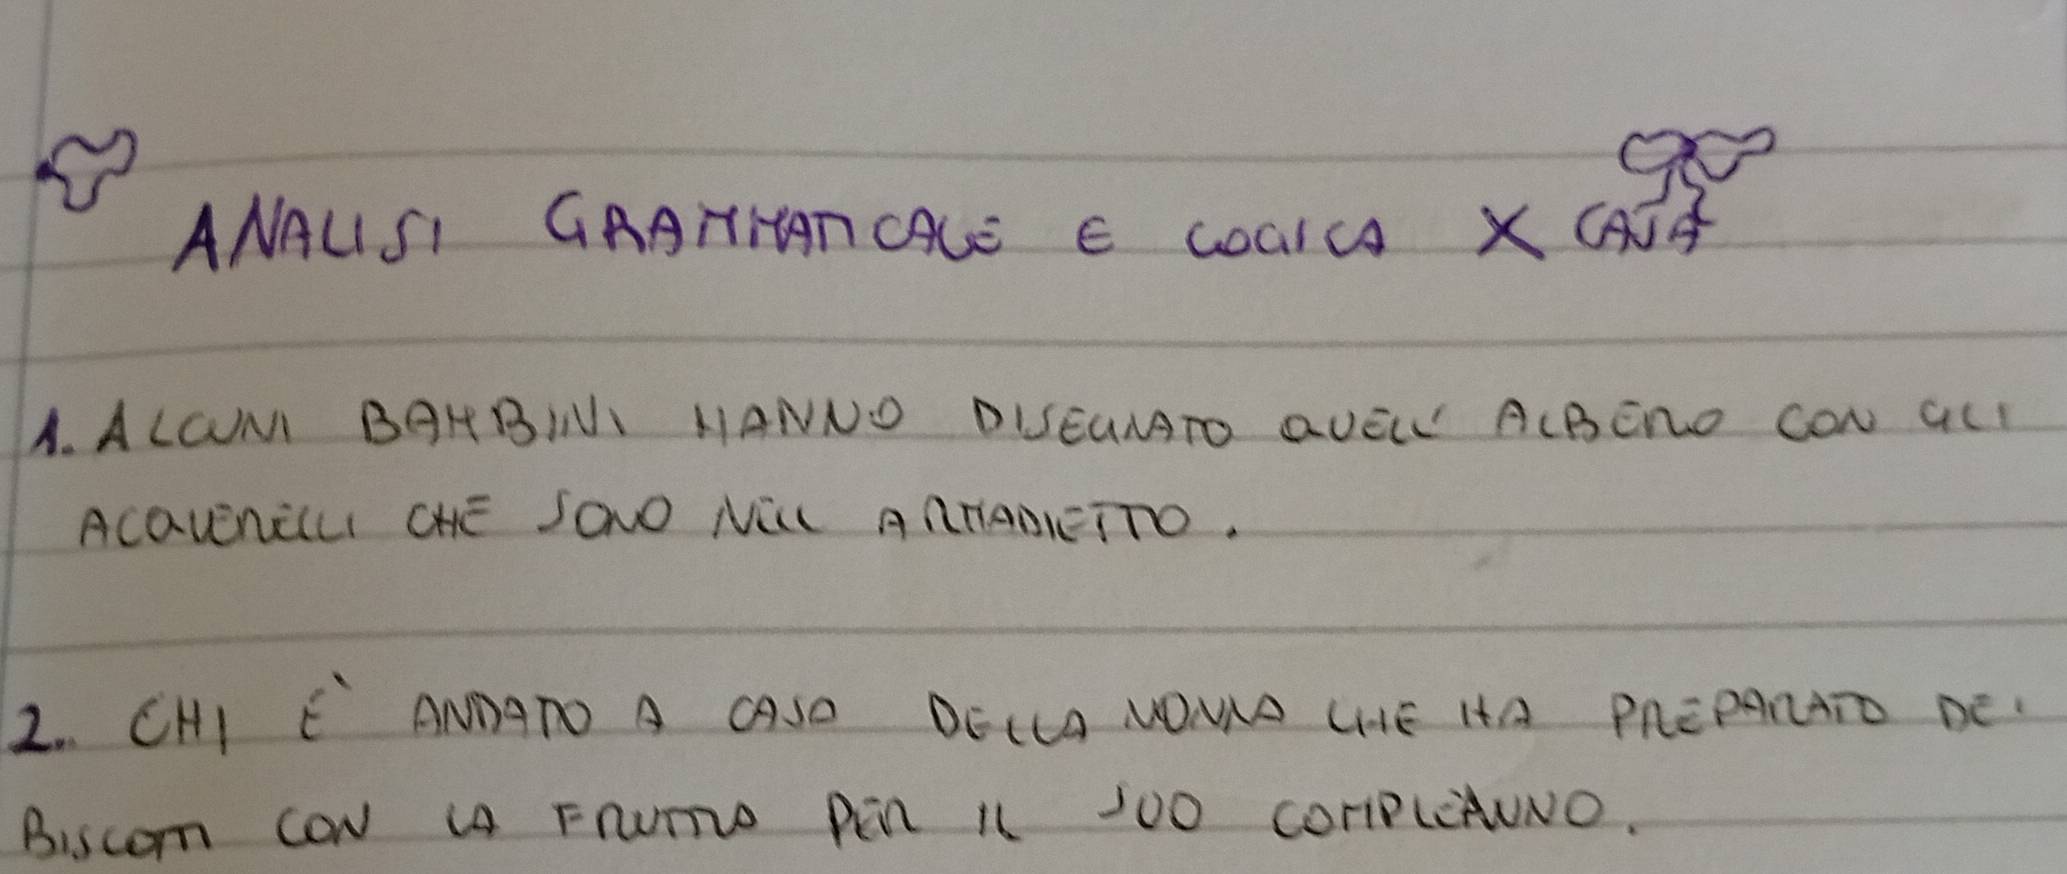 ANALISI GRAMMATICALE E LOGICA X CASA
1. ALCUNI BAMBINI HANNO DISEGNATO QUELL' ALBERO CON GLI
ACQUERELLI CHE SONO NELL ARMADIETTO.
2. CHI È ANDATO A CASA DELLA NONNA CHE HA PREPARATO DEI
BISCOTTI CON LA FRUTTA PER IL SUO COMPLEANNO.